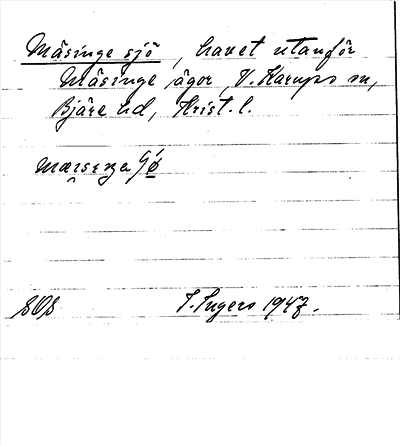 Mäsinge sjö, havet utanför
Mäsinge ägor, V. Karups sn,
Bjäre hd, Krist. l.
SOS
I. Ingers 1947.